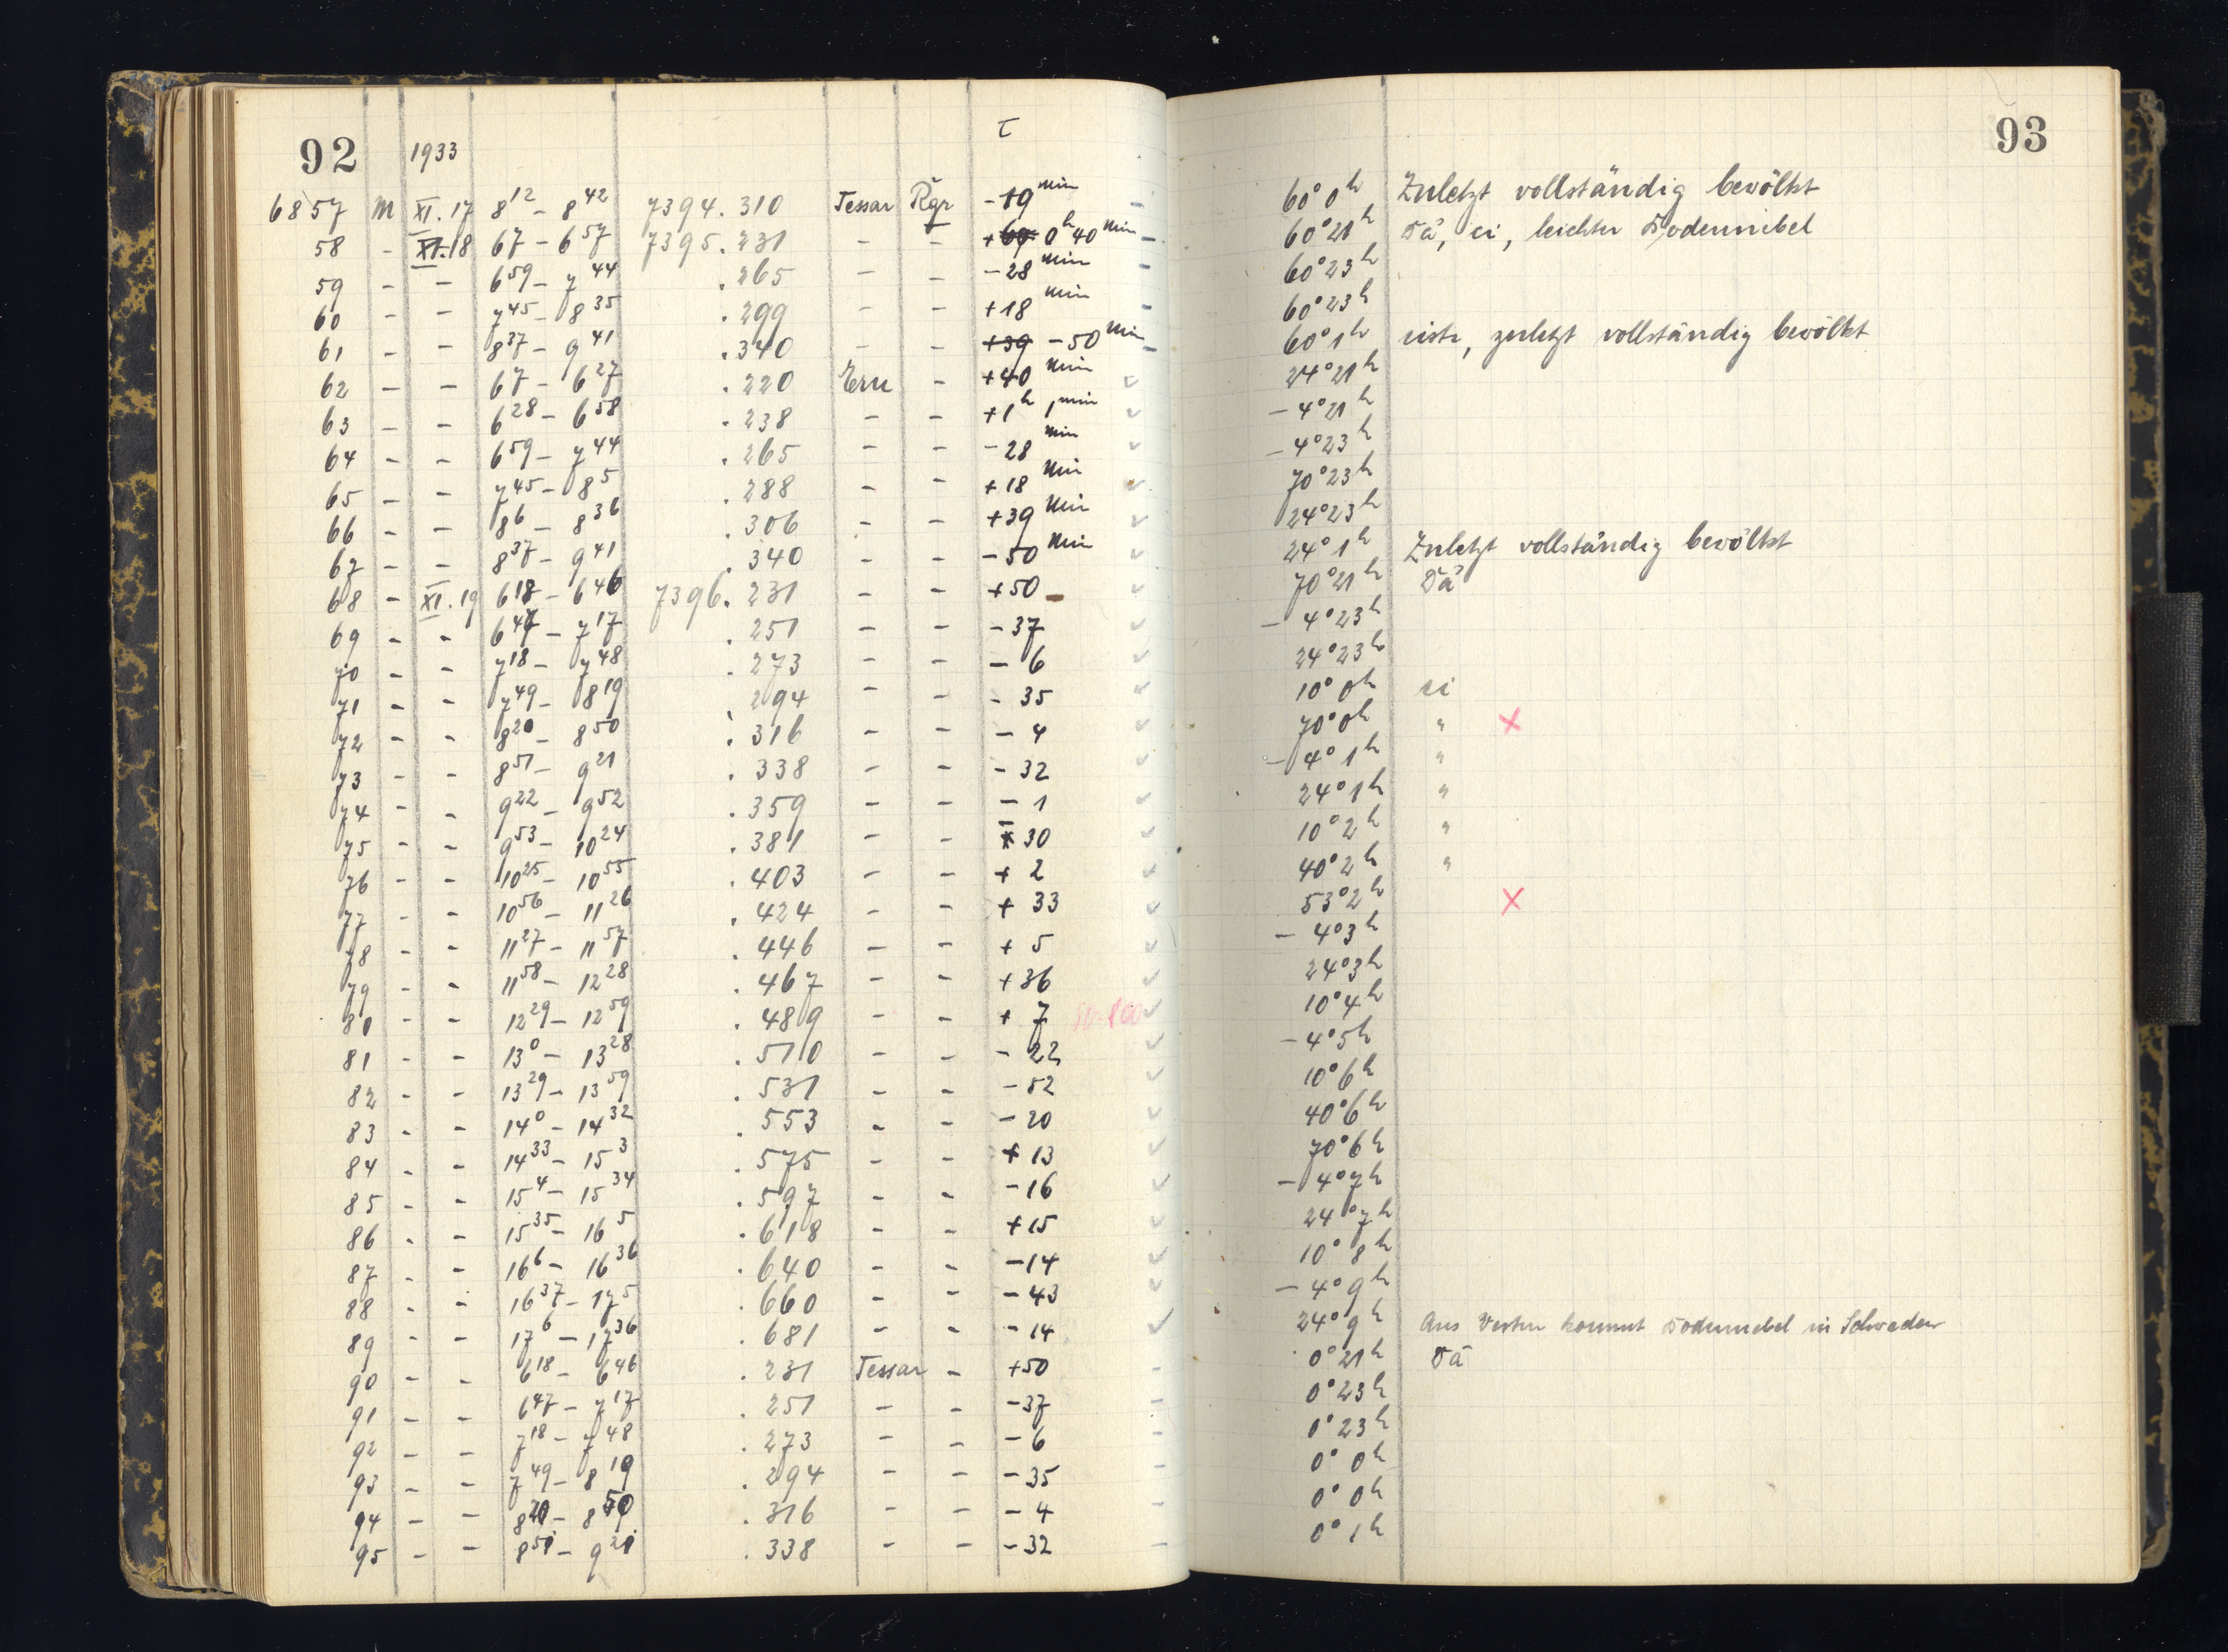 92 1933 τ 93
6857 M XI.17 8 12 – 8 42 7394.310 Tessar Rgr –19 min – 60° 0h Zuletzt vollständig bewölkt
58 – XI.18 6 7 – 6 57 7395.231 – – +69 0h 40 min – 60° 21h Dä, ci, leichter Bodennebel
59 – – 6 59 – 7 44 .265 – – –28 min – 60° 23h
60 – – 7 45 – 8 35 .299 – – +18 min – 60° 23h
61 – – 8 37 – 9 41 .340 – – +39 –50 min – 60° 1h cistr, zuletzt vollständig bewölkt
62 – – 6 7 – 6 27 .220 Ern – +40 min ✓ 24° 21h
63 – – 6 28 – 6 58 .238 – – +1h 1 min ✓ –4° 21h
64 – – 6 59 – 7 44 .265 – – –28 min ✓ –4° 23h
65 – – 7 45 – 8 5 .288 – – +18 min ✓ 70° 23h
66 – – 8 6 – 8 36 .306 – – +39 min ✓ 24° 23h
67 – – 8 37 – 9 41 .340 – – –50 min ✓ 24° 1h Zuletzt vollständig bewölkt
68 – XI.19 6 18 – 6 46 7396.231 – – +50 ✓ 70° 21h Dä
69 – – 6 47 – 7 17 .251 – – –37 ✓ –4° 23h
70 – – 7 18 – 7 48 .273 – – –6 ✓ 24° 23h
71 – – 7 49 – 8 19 .294 – – –35 ✓ 10° 0h ci
72 – – 8 20 – 8 50 .316 – – –4 ✓ 70° 0h " ×
73 – – 8 51 – 9 21 .338 – – –32 ✓ –4° 1h "
74 – – 9 22 – 9 52 .359 – – –1 ✓ 24° 1h "
75 – – 9 53 – 10 24 .381 – – –30 ✓ 10° 2h "
76 – – 10 25 – 10 55 .403 – – +2 ✓ 40° 2h "
77 – – 10 56 – 11 26 .424 – – +33 ✓ 53° 2h ×
78 – – 11 27 – 11 57 .446 – – +5 ✓ –4° 3h
79 – – 11 58 – 12 28 .467 – – +36 ✓ 24° 3h
80 – – 12 29 – 12 59 .489 – – +7 ✓ 10° 4h
81 – – 13 0 – 13 28 .510 – – –22 ✓ –4° 5h
82 – – 13 29 – 13 59 .531 – – –52 ✓ 10° 6h
83 – – 14 0 – 14 32 .553 – – –20 ✓ 40° 6h
84 – – 14 33 – 15 3 .575 – – +13 ✓ 70° 6h
85 – – 15 4 – 15 34 .597 – – –16 ✓ –4° 7h
86 – – 15 35 – 16 5 .618 – – +15 ✓ 24° 7h
87 – – 16 6 – 16 36 .640 – – –14 ✓ 10° 8h
88 – – 16 37 – 17 5 .660 – – –43 ✓ –4° 9h
89 – – 17 6 – 17 36 .681 – – –14 ✓ 24° 9h Aus Westen kommt Bodennebel in Schwaden
90 – – 6 18 – 6 46 .231 Tessar – +50 – 0° 21h Dä
91 – – 6 47 – 7 17 .251 – – –37 – 0° 23h
92 – – 7 18 – 7 48 .273 – – –6 – 0° 23h
93 – – 7 49 – 8 19 .294 – – –35 – 0° 0h
94 – – 8 20 – 8 50 .316 – – –4 – 0° 0h
95 – – 8 51 – 9 21 .338 – – –32 – 0° 1h